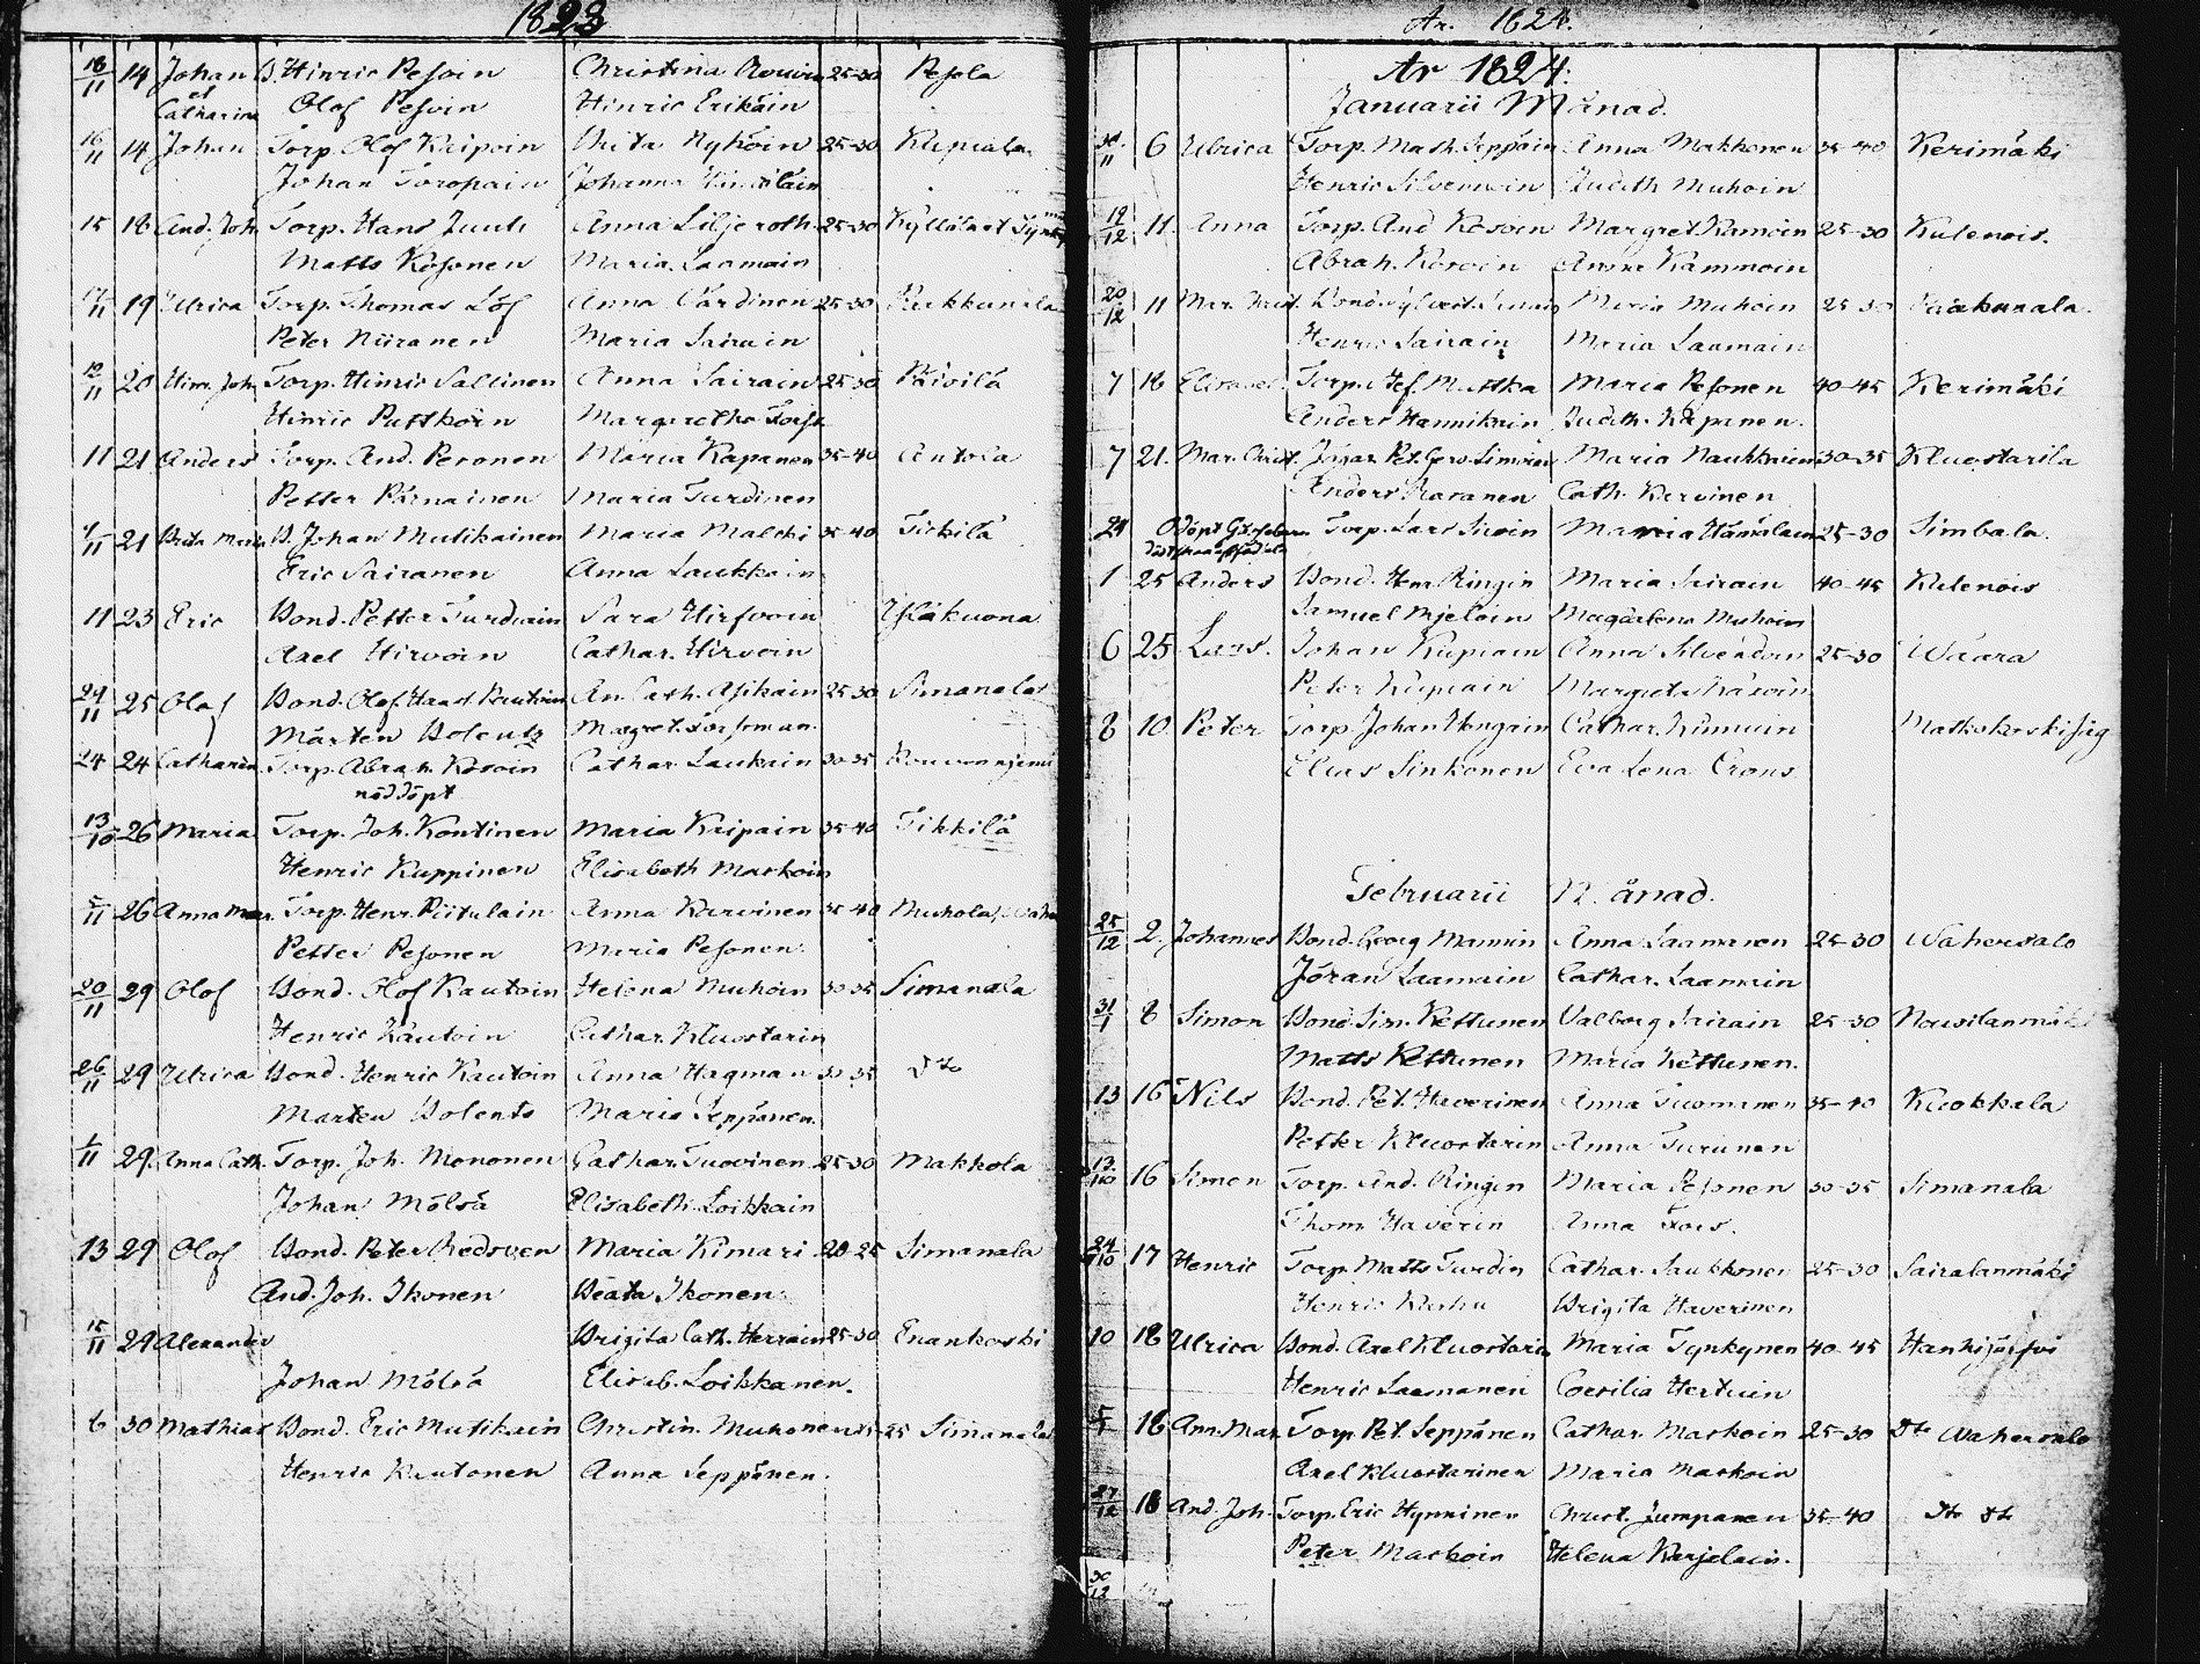 1823
18/11 14 Johan B. Hinric Pesoin Christina 25-30 Pesola
et Catharina Olof Pesoin Hinric Erikäin
16/11 14 Johan Torp. Olof Kaipoin Brita Nyhöin 25-30
Johan Toropain Johanna
15 18 And. Joh. Torp. Hans Juuti Anna Liljeroth 25-30
Matts Kosonen Maria Laamain
17/11 19 Ulrica Torp. Thomas Löf Anna Värdinen 25-30
Peter Niiranen Maria Sairain
12/11 20 Hinr. Joh. Torp. Hinric Sallinen Anna Sairain 25-30 Päivilä
Hinric Puttkoin Margaretha
11 21 Anders Torp. And. Peronen Maria Kapanen 35-40 Antola
Petter Pärnainen Maria Turdinen
1/11 21 Brita Maria B. Johan Mutikainen Maria Malchi 35-40 Tickilä
Eric Sairanen Anna Laukkain
11 23 Eric Bond. Petter Turduin Sara Hirfvoin Yläkuona
Axel Hirvoin Cathar. Hirvoin
29/11 25 Olof Bond. Olof Kautoin An. Cath. Asikain 25-30 Simanala
Mårten Bolentz Margret. Forsman
24 24 Catharin. Torp. Abrah. Kosoin Cathar. Laukain 30-35 Kouvonniemi
nöddöpt
13/10 26 Maria Torp. Joh. Kontinen Maria Kaipain 35-40 Tikkilä
Henric Kuppinen Elisabeth Markoin
5/11 26 Anna Mar. Torp. Henr. Piitulain Anna Karvinen 35-40 Muhola
Petter Pesonen Maria Pesonen
20/11 29 Olof Bond. Olof Kautoin Helena Muhoin 30-35 Simanala
Henric Kautoin Cathar. Kluostarin
26/11 29 Ulrica Bond. Henric Kautoin Anna Hagman 30-35 Dto
Mårten Bolents Maria Seppänen
1/11 29 Anna Cath. Torp. Joh. Mononen Cathar. Tuovinen 25-30 Makkola
Johan Mölsä Elisabeth Loikkain
13 29 Olof Bond. Peter Bredsven Maria Kimari 20-25 Simanala
And. Joh. Ikonen Beata Ikonen
15/11 29 Alexander Brigita Cath. Herrain 25-30 Enankoski
Johan Mölsä Elisab. Loikkanen.
6 30 Mathias Bond. Eric Mutikain Christin. Muhonen Simanala
Henric Kautonen Anna Seppänen.
År. 1824.
År 1824:
Januarii Månad.
30/11 6 Ulrica Torp. Math. Seppäin Anna Makkonen 35-40 Kerimäki
Henric Silvennoin Judith Muhoin
19/12 11 Anna Torp. And Kosoin Margret Kamoin 25-30 Kulenois.
Abrah. Kosoin Anna Kammoin
20/12 11 Mar. Christ. Bond. Maria Muhoin 25-30
Henric Sairain Maria Laamain
7 18 Elisabet Torp. Matska Maria Pesonen 40-45 Kerimäki
Anders Hannikain Judith Kapanen.
7 21. Mar. Christ. Maria Naukkain 30-35 Kluostarila
Anders Cath. Karvinen
24 Odöpt Torp. Lars Maria Hämälain 25-30 Simbala.
1 25 Anders Bond. Henr. Ringin Maria Sairain 40-45 Kulenois
Samuel Mjeloin Magdalena Muhoin
6 25 Lars. Johan Kupiain Anna 25-30 Waara
Peter Kupiain Margreta
8 10 Peter Torp. Johan Cathar.
Elias Sinkonen Eva Lena Crons
Februarii Månad.
25/12 2. Johannes Bond. Georg Mannin Anna Laamanen 25-30 Wahersalo
Jöran Laamain Cathar. Laamain
31/1 8 Simon Bond. Sim. Kettunen Valborg Sairain 25-30 Rouvilanmäki
Matts Kettunen Maria Kettunen.
13 16 Nils Bond. Pet. Haverinen Anna Tuomanen 35-40 Kuokkala
Petter Kluostarin Anna Turunen
13/10 16 Simon Torp. And. Ringin Maria Pesonen 30-35 Simanala
Thom. Haverin Anna
24/10 17 Henric Torp. Matts Turdin Cathar. Laukkonen 25-30 Sairalanmäki
Henric Brigita Haverinen
10 18 Ulrica Bond. Axel Kluostarin Maria Tynkynen 40-45 Hanhijärfvi
Henric Laamanen Coesilia Hertuin
5/1 18 Ann. Mar. Torp. Pet. Seppänen Cathar. Markoin 25-30 Dto Wahersalo
Axel Kluostarinen Maria Markoin
27/12 18 And. Joh. Torp. Eric Hynninen Christ. Jumpanen 35-40 Dto Dto
Peter Markoin Helena Karjalain.
30/12